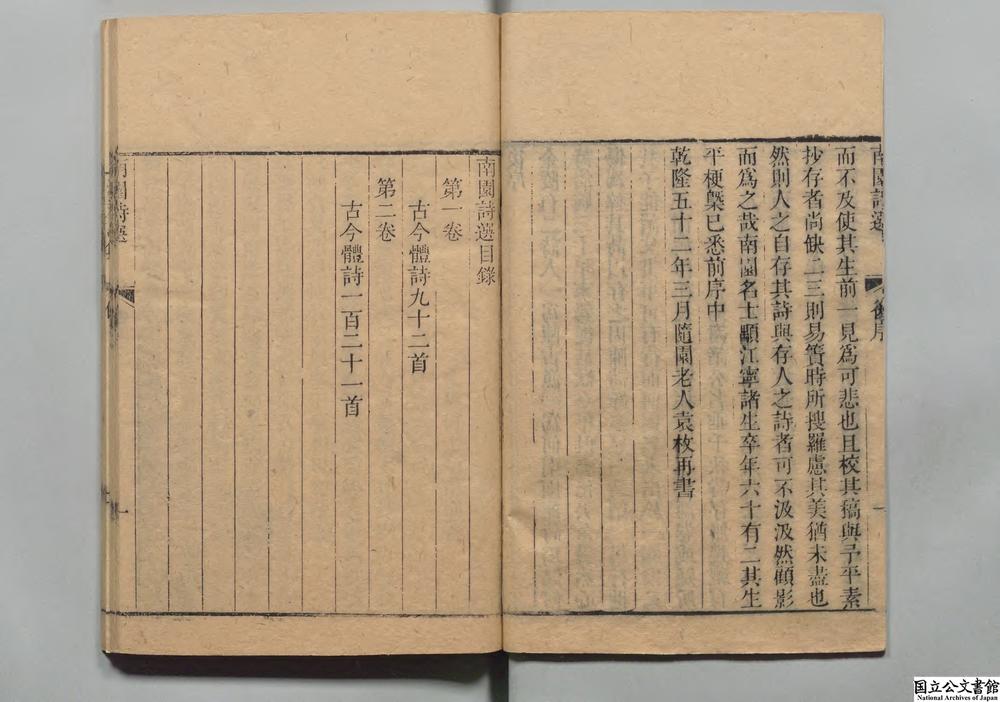 南園詩選
後序
一
而不及使其生前一見爲可悲也且校其稿與予平素
抄存者尚缺二三則易簀時所搜羅慮其美猶未盡也
然則人之自存其詩與存人之詩者可不汲汲然顧影
而爲之哉南園名士顯江寧諸生卒年六十有二其生
平梗槩已悉前序中
乾隆五十二年三月隨園老人袁枚再書
南園詩選目錄
第一卷
古今體詩九十二首
第二卷
古今體詩一百二十一首
南園詩選
一
国立公文書館
National Archives of Japan